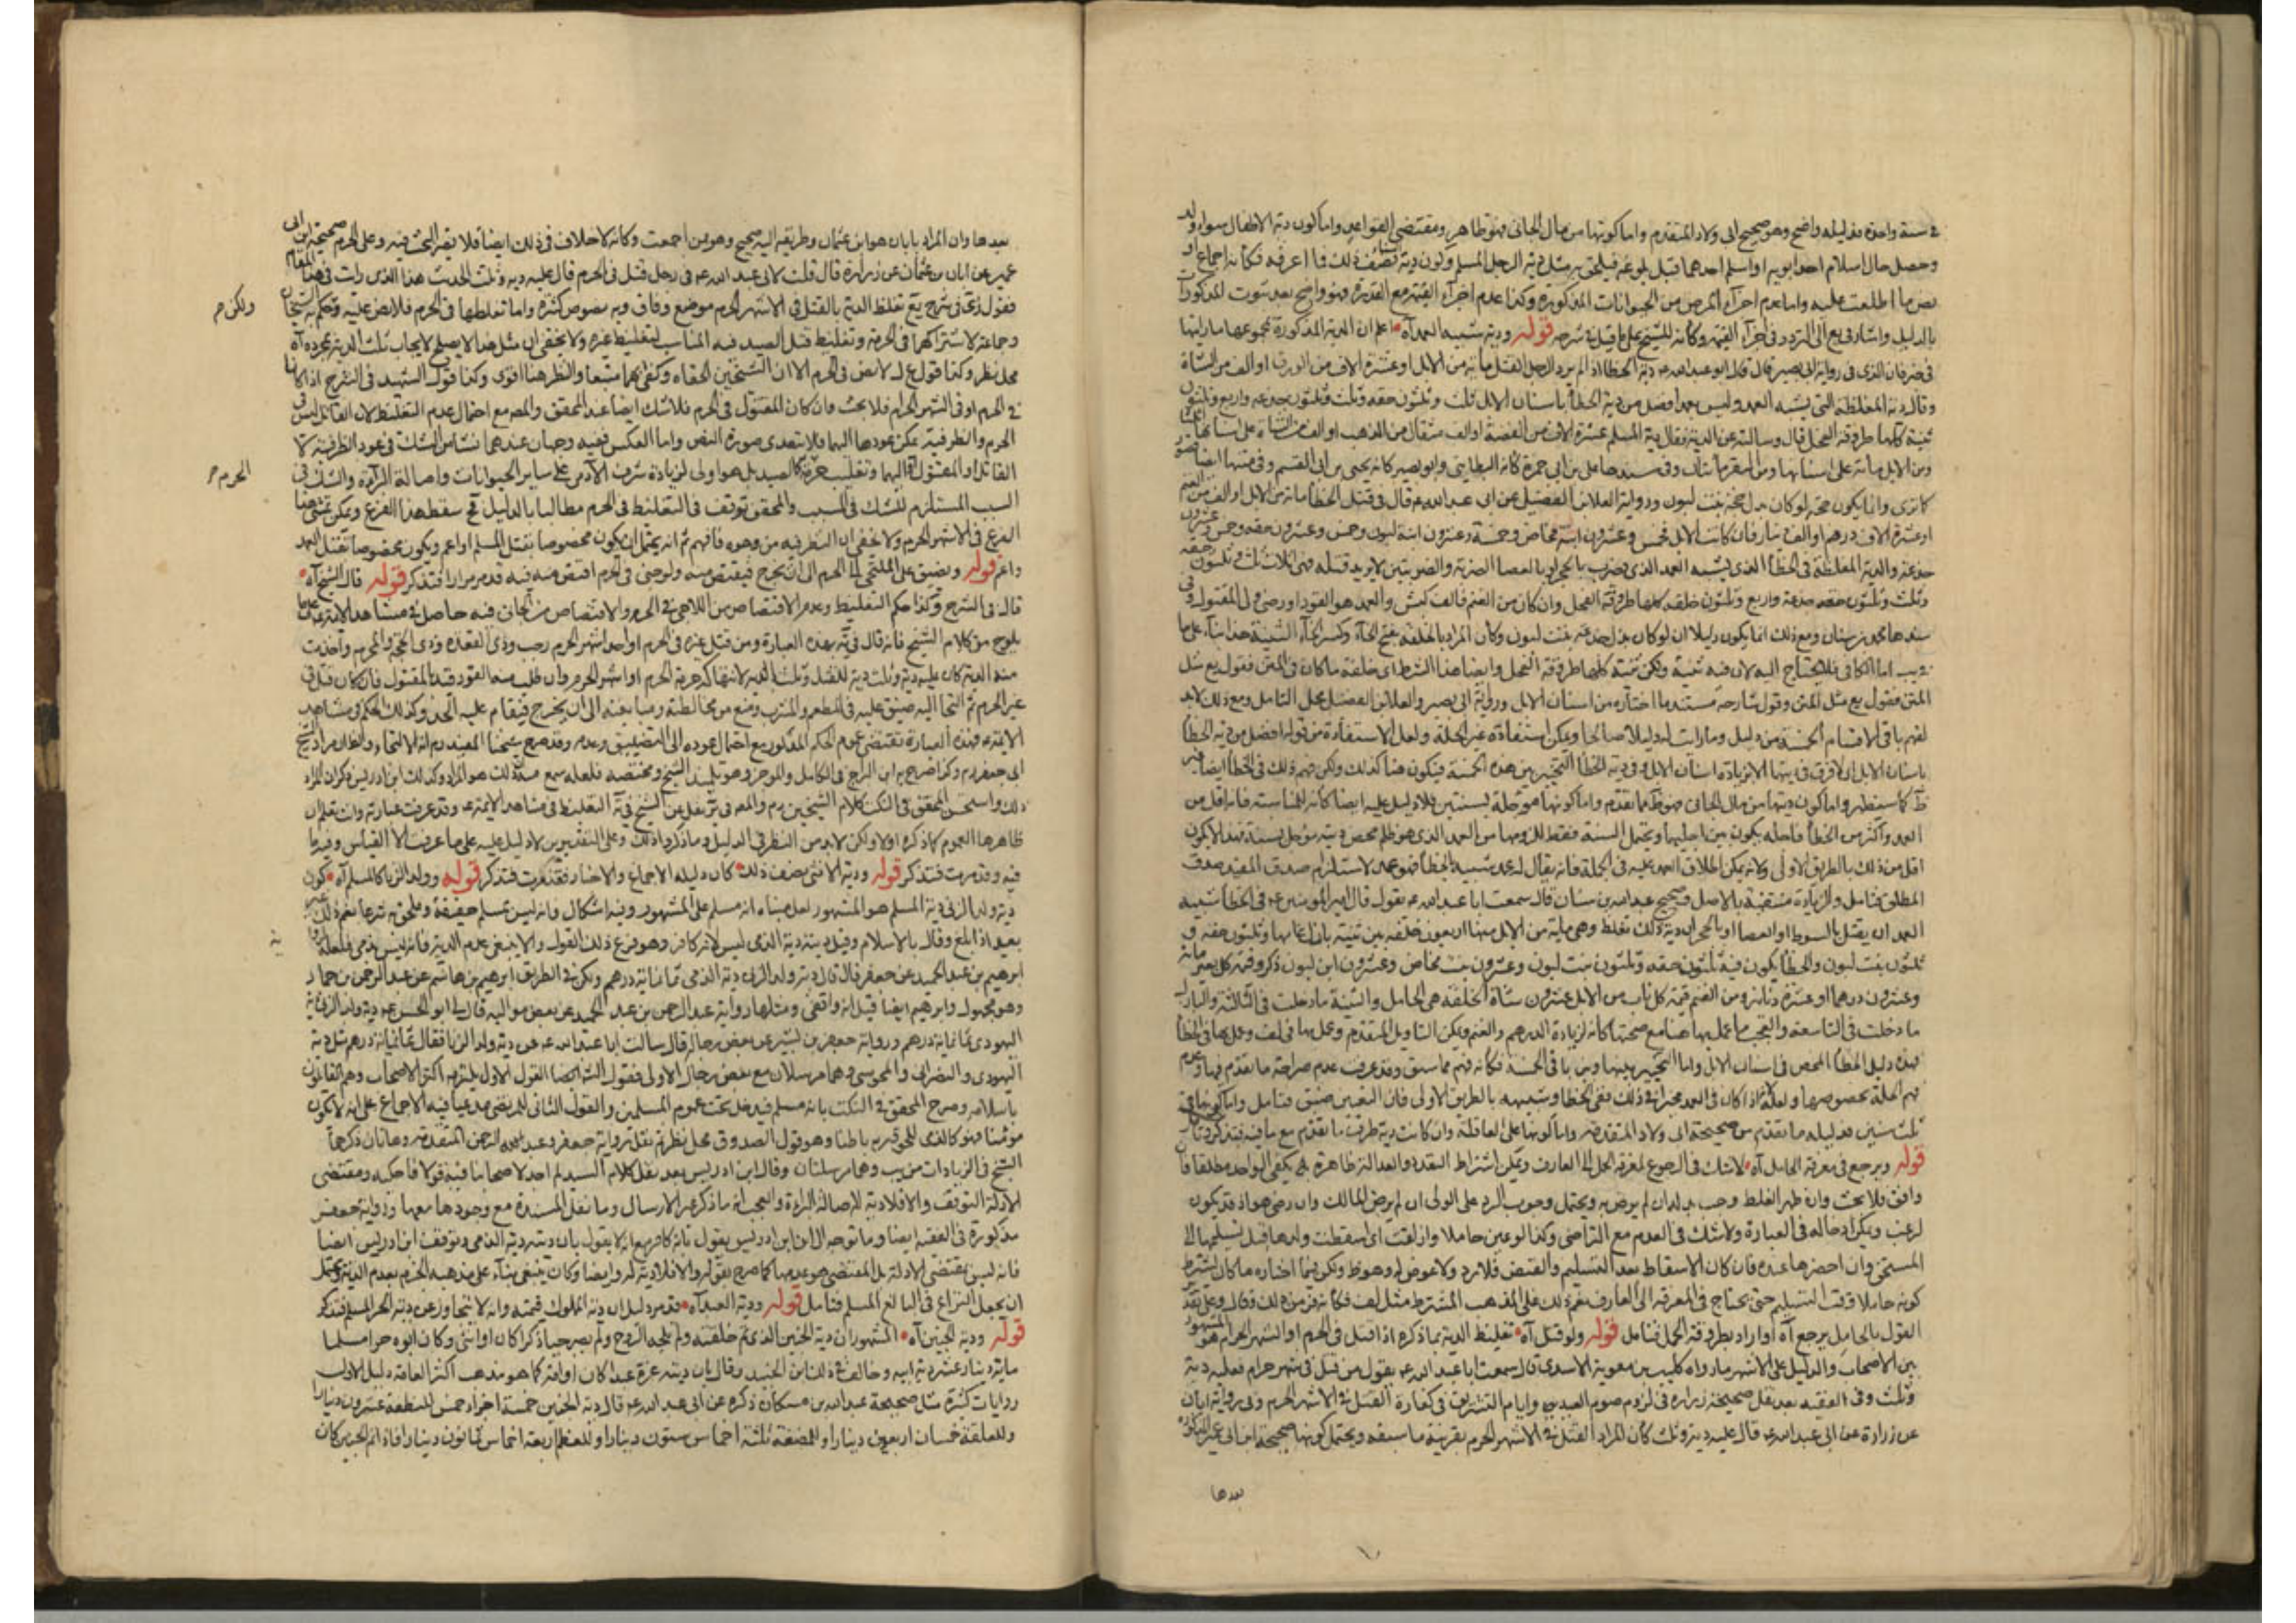 في سنة واحدة فدليله واضح وهو صحيح ابى ولاد المتقدم واما كونها من مال الجانى فهو ظاهر ومقتضى القواعد واما كون دية الاطفال سواء ولد
وحصل حال اسلام احد ابويه او اسلم احدهما قبل بلوغه فيلحق به مثل دية الرجل المسلم وكون دية نصف ذلك فما اعرفه فكأنه اجماع او
نص ما اطلعت عليه واما عدم اجزاء المرض من الحيوانات المذكورة وكذا عدم اجزاء القيمة مع القدرة فهو واضح بعد ثبوت المذكورات
بالدليل واشار في يع الى التردد فى اجزاء القيمة وكأنه للشيخ على ما قيل في شرحه قوله ودية شبيه العمد آه اعلم ان الدية المذكورة بمجموعها ما رايتها
فى خبر فان الذى فى رواية ابى بصير قال قال ابو عبد الله ع دية الخطا اذا لم يرد الرجل القتل مائة من الابل او عشرة الاف من الورق او الف من الشاة
وقال دية المغلظة التى يشبه العمد وليس بعمد افضل من دية الخطأ باسنان الابل ثلث وثلثون حقة وثلث وثلثون جذعة واربع وثلثون
ثنية كلها طروقة الفحل قال وسالته عن الدية فقال دية المسلم عشرة الاف من الفضة او الف مثقال من الذهب او الف من الشاة على اسنانها اثلاثا
ومن الابل مائة على اسنانها ومن البقر مائتان وفى سندها على بن ابى حمزة كأنه البطاينى وابو بصير كانه يحيى بن ابى القسم وفى متنها ايضا قصور
كما ترى وانما يكون حجة لو كان بدل حقة بنت لبون ورواية العلا بن الفضيل عن ابى عبد الله ع قال فى قتل الخطأ مائة من الابل او الف من الغنم
او عشرة الاف درهم او الف دينار فان كانت الابل فخمس وعشرون ابنة مخاض وخمسة وعشرون ابنة لبون وخمس وعشرون حقة وخمس وعشرون
جذعة والدية المغلظة فى الخطأ الذى يشبه العمد الذى يضرب بالحجر او بالعصا الضربة والضربتين لا يريد قتله فهى اثلاث ثلث وثلثون حقة
وثلث وثلثون جذعة واربع وثلثون خلفة كلها طروقة الفحل وان كان من الغنم فالف كبش والعمد هو القود او رضى ولى المقتول وفى
سندها محمد بن سنان ومع ذلك انما يكون دليلا ان لو كان بدل جذعة بنت لبون وكان المراد بالخلفة بفتح الخاء وكسر اللام الثنية هذا بناء على ما
يب اما الكافى فلا يحتاج اليه لان فيه ثنية ولكن ثنية كلها طروقة الفحل وايضا هذا الشرط اى خلفة ما كان فى المتن فقول يع مثل
المتن فقول يع مثل المتن وقول شارحه مستند ما اختاره من اسنان الابل رواية ابى بصير والعلا بن الفضيل محل التامل ومع ذلك لا بد
لفهم باقى الاقسام الخمسة من دليل وما رايت له دليلا صالحا ويمكن استفادة غير الحلة ولعل الاستفادة من قوله افضل من دية الخطأ
باسنان الابل اذ لا فرق فى بينها الا بزيادة اسنان الابل وفى دية الخطأ التخيير بين هذه الخمسة فيكون هنا كذلك ولكن فهم ذلك فى الخطأ ايضا
كما ستطهر واما كون ديتها من مال الجانى فهو ظ مما تقدم واما كونها مؤجلة لسنتين فلا دليل عليه ايضا كانه للمناسبة فانه اقل من
العمد واكثر من الخطأ فاجله يكون بين اجليهما ويحتمل السنة فقط للزومها من العمد الذى هو ظلم محض دية مؤجل بسنة فهذا لا يكون
اقل من ذلك بالطريق الاولى ولانه يمكن اطلاق العمد عليه فى الجملة فانه يقال له عمد شبيه الخطأ فهو عمد لاستلزام صدق المقيد صدق
المطلق فتامل والزيادة منتفية بالاصل وصحيح عبد الله بن سنان قال سمعت ابا عبد الله ع يقول قال امير المؤمنين ع فى الخطأ شبيه
العمد ان يقتل بالسوط او العصا او بالحجر ان دية ذلك تغلظ وهى مائة من الابل منها اربعون خلفة بين ثنية بازل عامها وثلثون حقة و
ثلثون بنت لبون والخطأ يكون فيه ثلثون حقة وثلثون بنت لبون وعشرون بنت مخاض وعشرون ابن لبون ذكر وقيمة كل بعير مائة
وعشرون درهما او عشرة دنانير ومن الغنم قيمة كل ناب من الابل عشرون شاة الخلفة هى الحامل والثنية ما دخلت فى الثالثة والبازل
ما دخلت فى التاسعة والعجب ما عمل بها هنا مع صحتها كانه لزيادة الدرهم والغنم ويمكن التاويل المتقدم وعمل بها فى لف وعمل بها فى الخطأ
فهذه دليل الخطأ المحض فى اسنان الابل واما التخيير بينها وبين باقى الخمسة فكانه فهم مما سبق وقد عرفت عدم صراحة ما تقدم فيها وعدم
فهم الحلة بخصوصها ولعله اذا كان فى العمد مخيرا فى ذلك ففى الخطا وشبيهه بالطريق الاولى فان التعيين ضيق فتامل واما كونها فى
ثلث سنين فدليله ما تقدم من صحيحة ابى ولاد المتقدمة واما كونها على العاقلة وان كانت دية طرف ما تقدم مع ما فيه فتذكر وتامل
قوله ويرجع فى معرفة الحامل آه لا شك فى الرجوع لمعرفة الحمل الى العارف ويمكن اشتراط التعدد والعدالة ظاهرة بل يكفى الواحد مطلقا فان
وافق فلا بحث وان ظهر الغلط وجب بدله ان لم يرض به ويحتمل وجوب الرد على الولى ان لم يرض المالك وان رضى هو اذ قد يكون
لرغب ويمكن ادخاله فى العبارة ولا شك فى العدم مع التراضى وكذا لو عين حاملا وازلقت اى اسقطت ولدها قبل تسليمها الى
المستحق وان احضرها عنده فان كان الاسقاط بعد التسليم والقبض فلا رد ولا عوض له وهو ظ ولكن فيما اختاره ما كان يشترط
كونه حاملا وقت التسليم حتى يحتاج فى المعرفة الى العارف نعم ذلك على المذهب المشترط مثل لف فكأنه فرض ذلك فقال وعلى تقدير
القول بالحامل يرجع آه او اراد بطروقة الحمل فتامل قوله ولو قتل آه تغليظ الدية بما ذكره اذا قتل فى الحرم او الشهر الحرام هو المشهور
بين الاصحاب والدليل على الاشهر ما رواه كليب بن معوية الاسدى قال سمعت ابا عبد الله ع يقول من قتل فى شهر حرام فعليه دية
وثلث وفى الفقيه بعد نقل صحيحة زرارة فى لزوم صوم العيدين وايام التشريق فى كفارة القتل فى الاشهر الحرم وفى رواية ابان
عن زرارة عن ابى عبد الله ع قال عليه دية وثلث كأن المراد القتل فى الاشهر الحرم بقرينة ما سبقه ويحتمل كونها صحيحة ابن ابى عمير المذكورة
بعدها
بعدها وان المراد بابان هو ابن عثمان وطريقه اليه صحيح وهو ممن اجمعت وكانه لا خلاف فى ذلك ايضا فلا يضر البحث فيه وعلى الحرم صحيحة ابن ابى
عمير عن ابان بن عثمان عن زرارة قال قلت لابى عبد الله ع فى رجل قتل فى الحرم قال عليه دية وثلث الحديث هذا الذى رايت فى هذا المقام
فقول فى شرح يع تغلظ الدية بالقتل فى الاشهر الحرم موضع وفاق وبه نصوص كثيرة واما تغليظها فى الحرم فلا نص عليه وحكم به الشيخان
ولكن م
وجماعة لاشتراكهما فى الحرمة وتغليظ قتل الصيد فيه المناسب لتغليظ غيره ولا يخفى ان مثل هذا لا يصلح لايجاب ثلث الدية بمجرده آه
محل نظر وكذا قول لا نص فى الحرم الا ان الشيخين الحقاه وكفى بهما متبعا والنظر هنا اقوى وكذا قول الشهيد فى الشرح اذا كانا
فى الحرم او فى الشهر الحرام فلا بحث وان كان المقتول فى الحرم فلا شك ايضا عند المحقق والمص مع احتمال عدم التغليظ لان القاتل ليس فى
الحرم والظرفية يمكن عودها اليهما فلا يتعدى صورة النص واما العكس ففيه وجهان عندهما نشآ من الشك فى عود الظرفية الى
القاتل او المقتول او اليهما وتغليب حرمة كالصيد بل هو اولى لزيادة شرف الآدمى على سائر الحيوانات واصالة البراءة والشك فى
الحرم م
السبب المستلزم للشك فى المسبب والمحقق توقف فى التغليظ فى الحرم مطالبا بالدليل فح سقط هذا الفرع ويمكن تمشى هذا
الفرع فى الاشهر الحرم ولا يخفى ان النظر فيه من وجوه فافهم ثم انه يحتمل ان يكون مخصوصا بقتل المسلم او اعم ويكون مخصوصا بقتل العمد
واعم قوله ويضيق على الملتجى الى الحرم الى ان يخرج فيقتص منه ولو جنى فى الحرم اقتص منه فيه قد مر مرارا فتذكر قوله قال الشيخ آه
قال فى الشرح وكذا حكم التغليظ وعدم الاقتصاص من اللاجى فى الحرم والاقتصاص من الجانى فيه حاصل فى مشاهد الائمة ع
يلوح من كلام الشيخ فانه قال فى ية بهذه العبارة ومن قتل غيره فى الحرم او احد اشهر الحرم رجب وذى القعدة وذى الحجة والمحرم واخذت
منه الدية كان عليه دية وثلث دية للقتل وثلث الدية لانتهاكه حرمة الحرم او اشهر الحرم وان طلب منه القود قيد بالمقتول فان كان قتل فى
غير الحرم ثم التجأ اليه ضيق عليه فى المطعم والمشرب ومنع من مخالطته ومبايعته الى ان يخرج فيقام عليه الحد وكذلك الحكم فى مشاهد
الائمة ع فهذه العبارة تقتضى عموم الحكم المذكور مع احتمال عوده الى التضييق وعدمه وقد صرح شيخنا المفيد ره بانه الالتجاء والظاهر مراد شيخ
ابى جعفر ره وكذا صرح به ابن البراج فى الكامل والموجز وهو تلميذ الشيخ ومختصه فلعله سمع منه ذلك هو المراد وكذلك ابن ادريس ذكر ان المراد
ذلك واستحسن المحقق فى النكت كلام الشيخين ره والمص فى ير نقل عن الشيخ فى ية التغليظ فى مشاهد الائمة ع وقد عرفت عبارته وانت تعلم ان
ظاهرها العموم كما ذكره اولا ولكن لا بد من النظر فى الدليل وما ذكروا ذلك وعلى التقديرين لا دليل عليه على ما عرفت الا القياس وفيه ما
فيه وقد مرت فتذكر قوله ودية الانثى نصف ذلك كان دليله الاجماع والاخبار فقد مرت فتذكر قوله وولد الزنا كالمسلم آه كون
دية ولد الزنا دية المسلم هو المشهور لعل مبناه انه مسلم على المشهور وفيه اشكال فانه ليس بمسلم حقيقة وملحق به شرعا نعم ذلك
بعد اذا بلغ وقال بالاسلام وقيل ديته دية الذمى ليس لانه كافر وهو فرع ذلك القول والا ينبغى عدم الدية فانه ليس بذمى فلعله لرواية
ابرهيم بن عبد الحميد عن جعفر قال قال دية ولد الزنا دية الذمى ثمانمائة درهم ولكن فى الطريق ابرهيم بن هاشم عن عبد الرحمن بن حماد
وهو مجهول وابرهيم ايضا قيل انه واقفى ومثلها رواية عبد الرحمن بن عبد الحميد عن بعض مواليه قال لى ابو الحسن ع دية ولد الزنا دية
اليهودى ثمانمائة درهم ورواية جعفر بن بشير عن بعض رجاله قال سالت ابا عبد الله ع عن دية ولد الزنا فقال ثمانمائة درهم مثل دية
اليهودى والنصرانى والمجوسى وهما مرسلان مع بعض رجال الاولى فقول الشارح ايضا القول الاول يلتزم به اكثر الاصحاب وهم القائلون
باسلامه وصرح المحقق فى النكت بانه مسلم فيدخل تحت عموم المسلمين والقول الثانى للمرتضى مدعيا فيه الاجماع على انه لا يكون
مؤمنا فهو كالذمى للحوقه به باطنا وهو قول الصدوق محل نظر ثم نقل رواية جعفر وعبد الرحمن المتقدمة وهاتان ذكرهما
الشيخ فى الزيادات من يب وهما مرسلتان وقال ابن ادريس بعد نقل كلام السيد لم اجد لاصحابنا فيه قولا فاحكيه ومقتضى
الادلة التوقف والا فلا دية له لاصالة البراءة والعجب انه ما ذكر غير الارسال وما نقل المسندة مع وجودها معهما ورواية جعفر
مذكورة فى الفقيه ايضا وما توجه الى ان ابن ادريس يقول بانه كافر مع انه لا يقول بان ديته دية الذمى وتوقف ابن ادريس ايضا
فانه ليس مقتضى الادلة بل المقتضى هو عدمها كما صرح بقوله والا فلا دية له وايضا وكان ينبغى بناء على مذهبه الجزم بعدم الدية ويحتمل
ان يجعل النزاع فى البالغ المسلم فتامل قوله ودية العبد آه قد مر دليل ان دية المملوك قيمته وانه لا يتجاوز عن دية الحر المسلم فتذكر
قوله ودية الجنين آه المشهور ان دية الجنين الذى تم خلقته ولم يلجه الروح ولم يصر حيا ذكرا كان او انثى وكان ابوه حرا مسلما
مائة دينار عشر دية ابيه وخالف فى ذلك ابن الجنيد وقال بان ديته غرة عبد ا كان او امة كما هو مذهب اكثر العامة دليل الاول
روايات كثيرة مثل صحيحة عبد الله بن مسكان ذكره عن ابى عبد الله ع قال دية الجنين خمسة اجزاء خمس للنطفة عشرون دينارا
وللعلقة خمسان اربعون دينارا وللمضغة ثلثة اخماس ستون دينارا وللعظم اربعة اخماس ثمانون دينارا فاذا تم الجنين كان